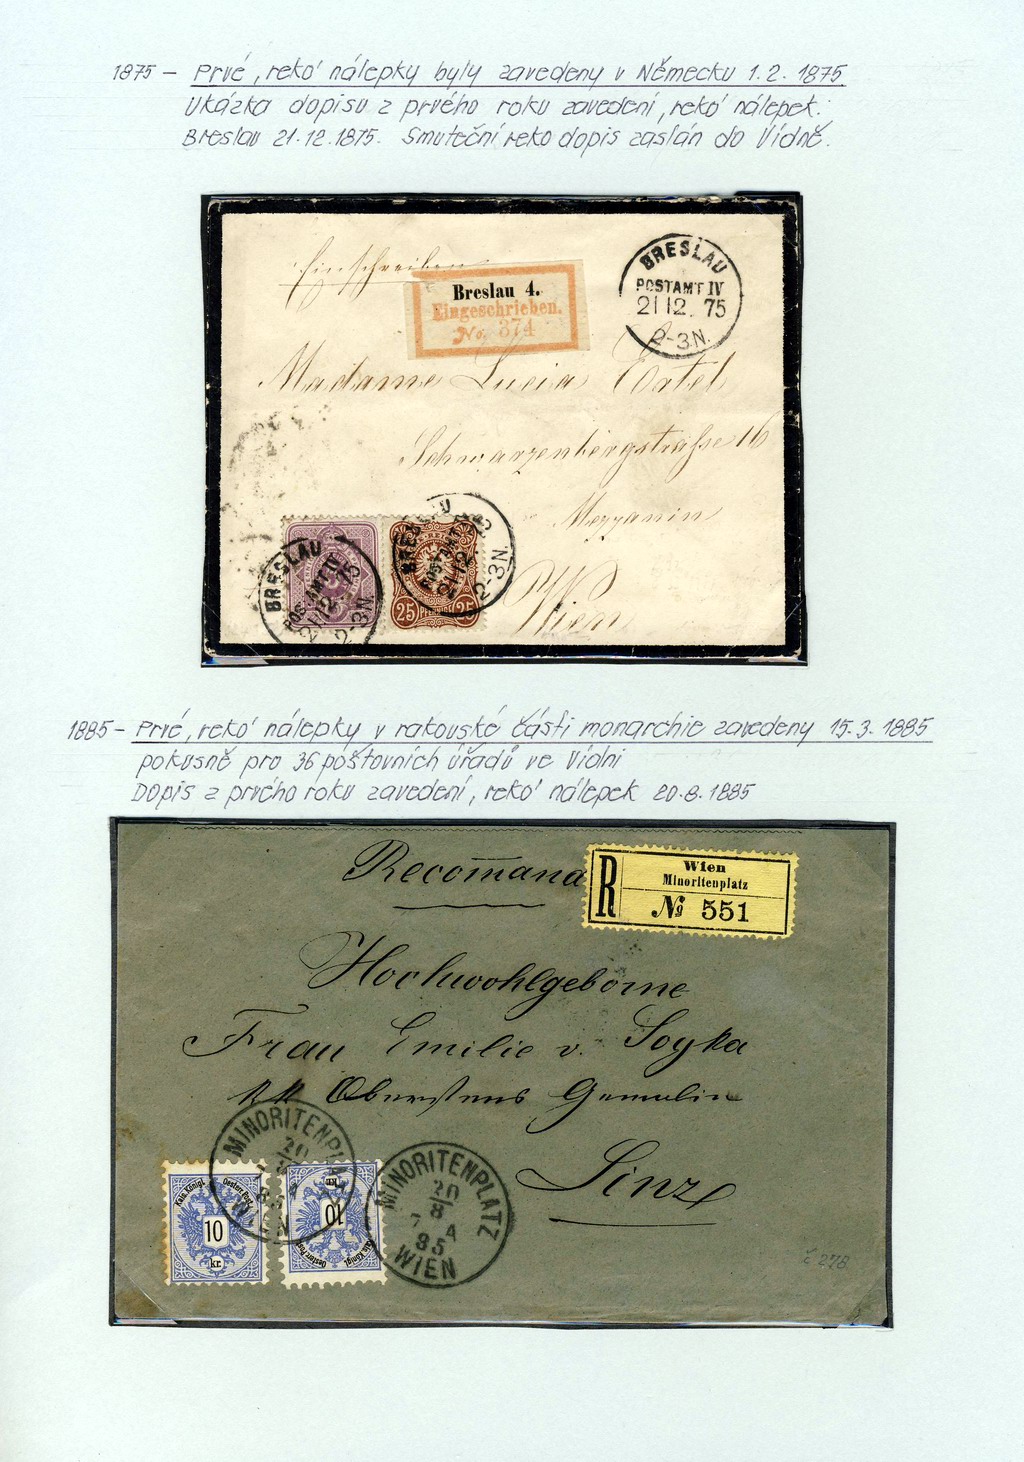 1875 – Prvé „reko“ nálepky byly zavedeny v Německu 1.2.1875
Ukázka dopisu z prvého roku zavedení „reko“ nálepek:
Breslau 21.12.1875. Smuteční reko dopis zaslán do Vídně.
Einschreiben
Breslau 4.
Eingeschrieben.
No. 374
BRESLAU
POSTAMT IV
21 12. 75
2-3N.
Madame Lucia
Schwarzenbergstrasse 16
Mezzanin
Wien
BRESLAU
21/12 75
2-3N.
BRESLAU
POSTAMT
21/12
2-3N.
25 PFENNIGE 25
1885 – Prvé „reko“ nálepky v rakouské části monarchie zavedeny 15.3.1885
pokusně pro 36 poštovních úřadů ve Vídni
Dopis z prvého roku zavedení „reko“ nálepek 20.8.1885
Recommand
R
Wien
Minoritenplatz
№ 551
Hochwohlgeborne
Frau Emilie v. Soyka
kk Oberstens Gemalin
Linz
MINORITENPLATZ
20
85
WIEN
MINORITENPLATZ
20
8
7 A
85
WIEN
Kais. Königl. Oesterr. Post
10
kr.
Kais. Königl. Oesterr. Post
10
kr.
č 278